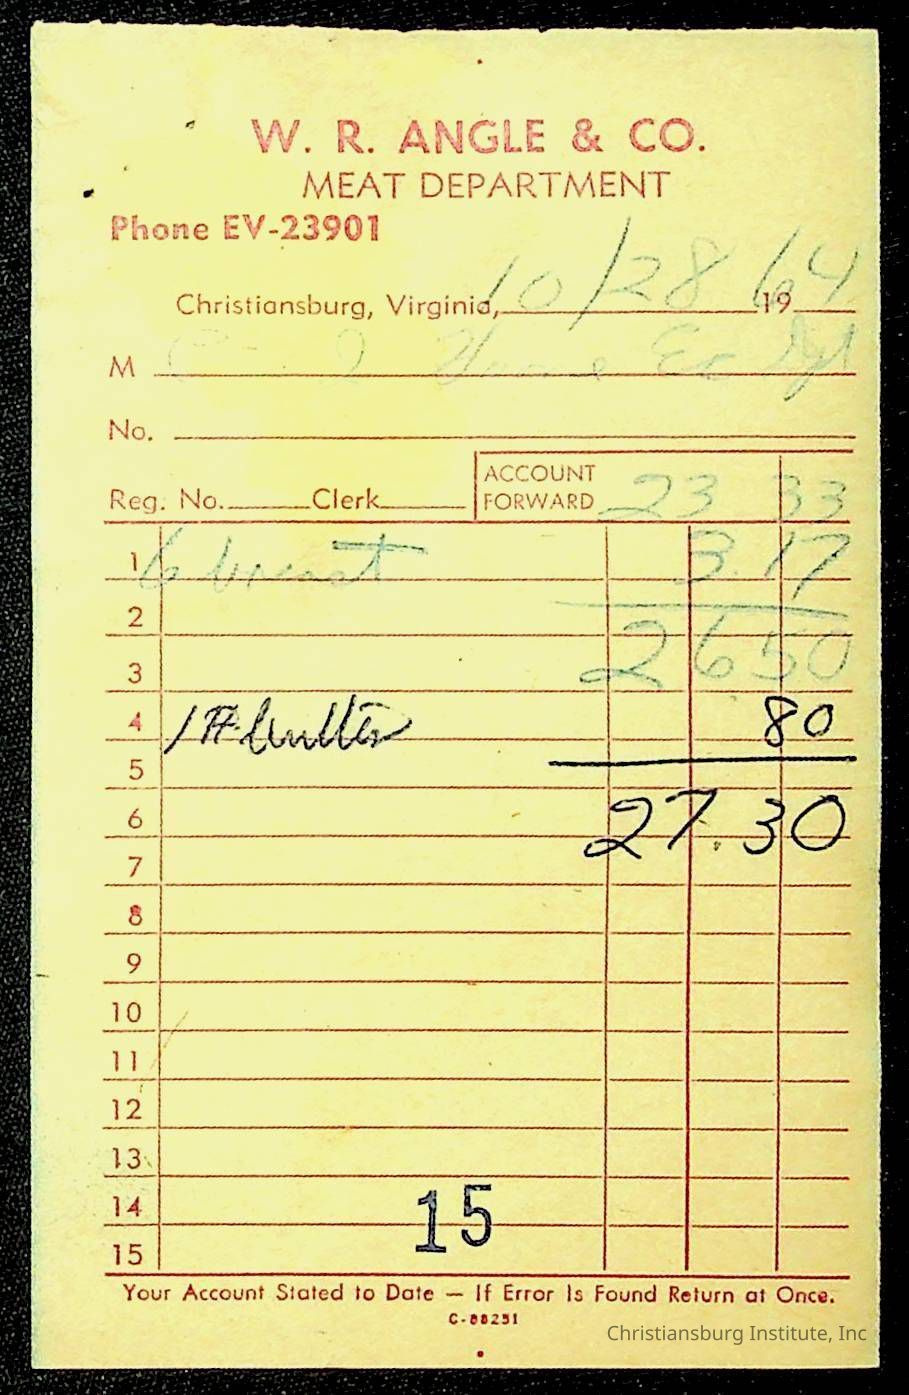 W. R. ANGLE & CO.
MEAT DEPARTMENT
Phone EV-23901
Christiansburg, Virginia, 10/28 1964
M C I Home Ec Dpt
No.
Reg. No. Clerk ACCOUNT FORWARD 23 33
1 6 breast 3.17
2
3 26 50
4 1# butter 80
5
6 27.30
7
8
9
10
11
12
13
14
15
15
Your Account Stated to Date — If Error Is Found Return at Once.
C-88251
Christiansburg Institute, Inc